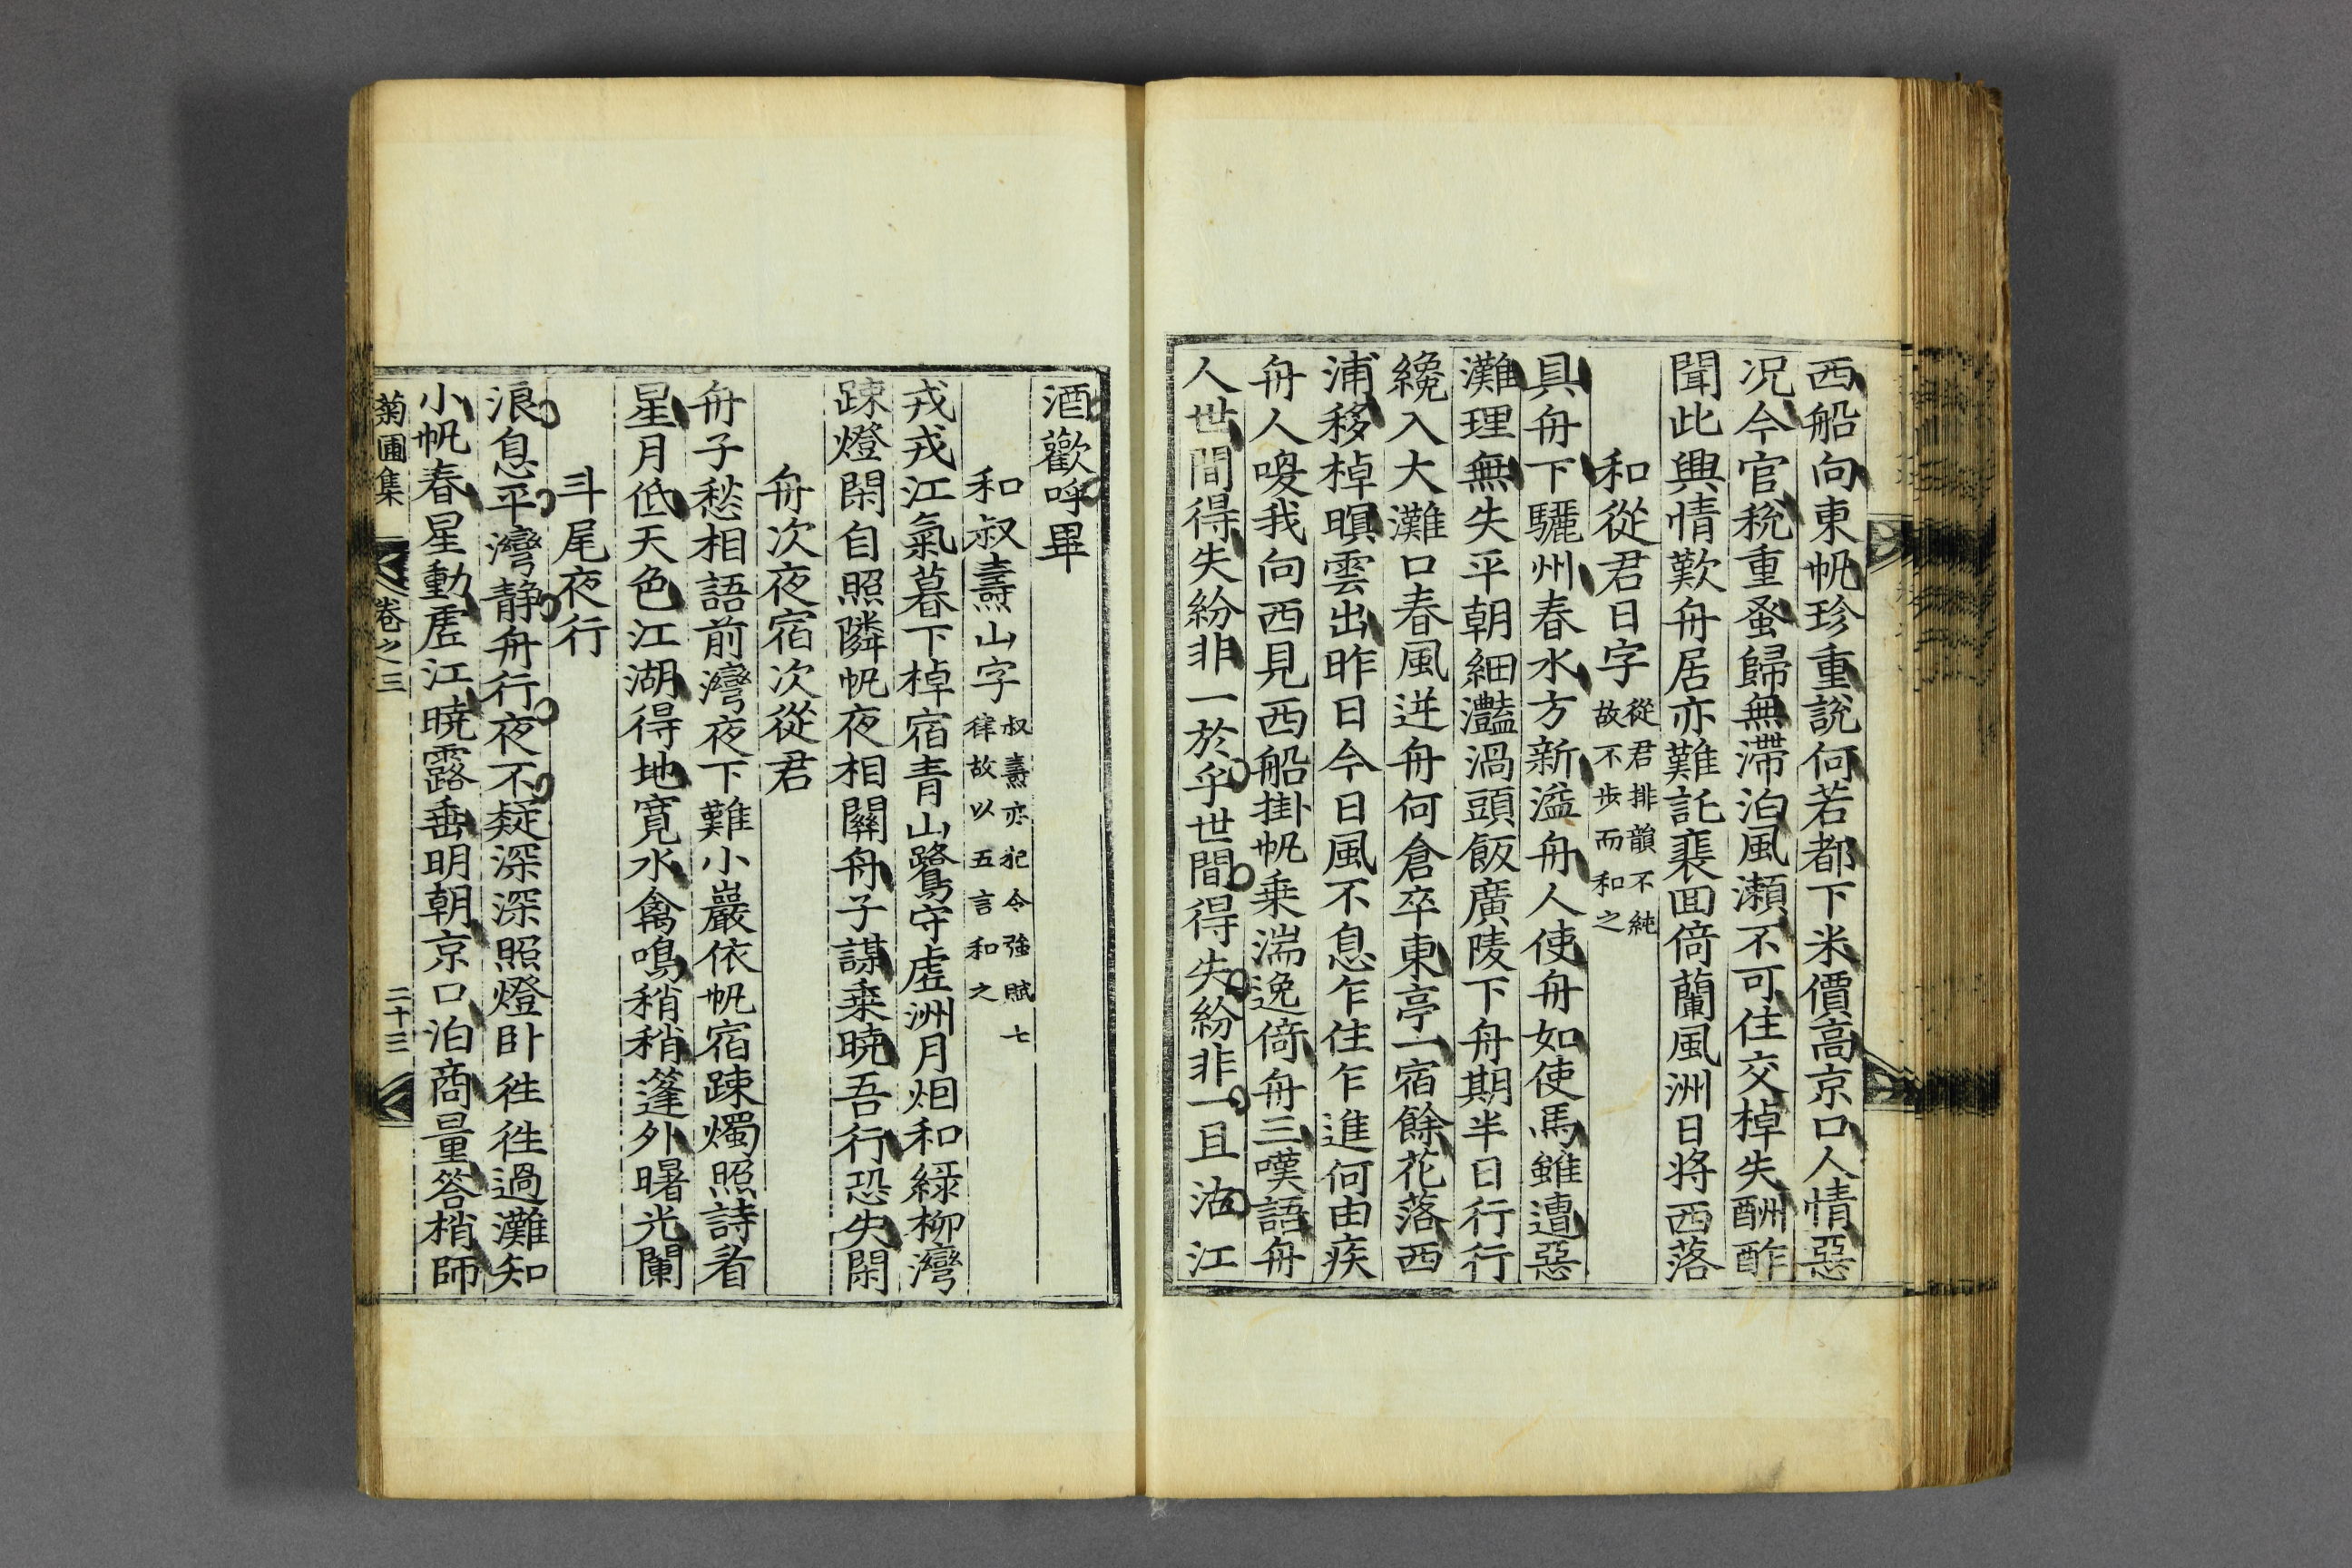 西船向東帆珍重說何若都下米價高京口人情惡
況今官稅重蚤歸無滯泊風瀨不可住交棹失酬酢
聞此興情歎舟居亦難託裴回倚蘭風洲日將西落
和從君日字
從君排韻不純
故不步而和之
具舟下驪州春水方新溢舟人使舟如使馬雖遭惡
灘理無失平朝細灩渦頭飯廣陵下舟期半日行行
纔入大灘口春風逆舟何倉卒東亭一宿餘花落西
浦移棹暝雲出昨日今日風不息乍住乍進何由疾
舟人唆我向西見西船掛帆乗湍逸倚舟三嘆語舟
人世間得失紛非一於乎世間得失紛非一且沽江
酒歡呼畢
和叔燾山字
叔燾亦犯令強賦七
律故以五言和之
戎戎江氣暮下棹宿青山鷺守虛洲月烟和綠柳灣
踈燈閑自照隣帆夜相關舟子謀乗曉吾行恐失閑
舟次夜宿次從君
舟子愁相語前灣夜下難小巖依帆宿踈燭照詩看
星月低天色江湖得地寬水禽鳴稍稍篷外曙光闌
斗尾夜行
浪息平灣靜舟行夜不疑深深照燈卧徃徃過灘知
小帆春星動虛江曉露垂明朝京口泊商量答梢師
菊圃集 卷之三 二十三